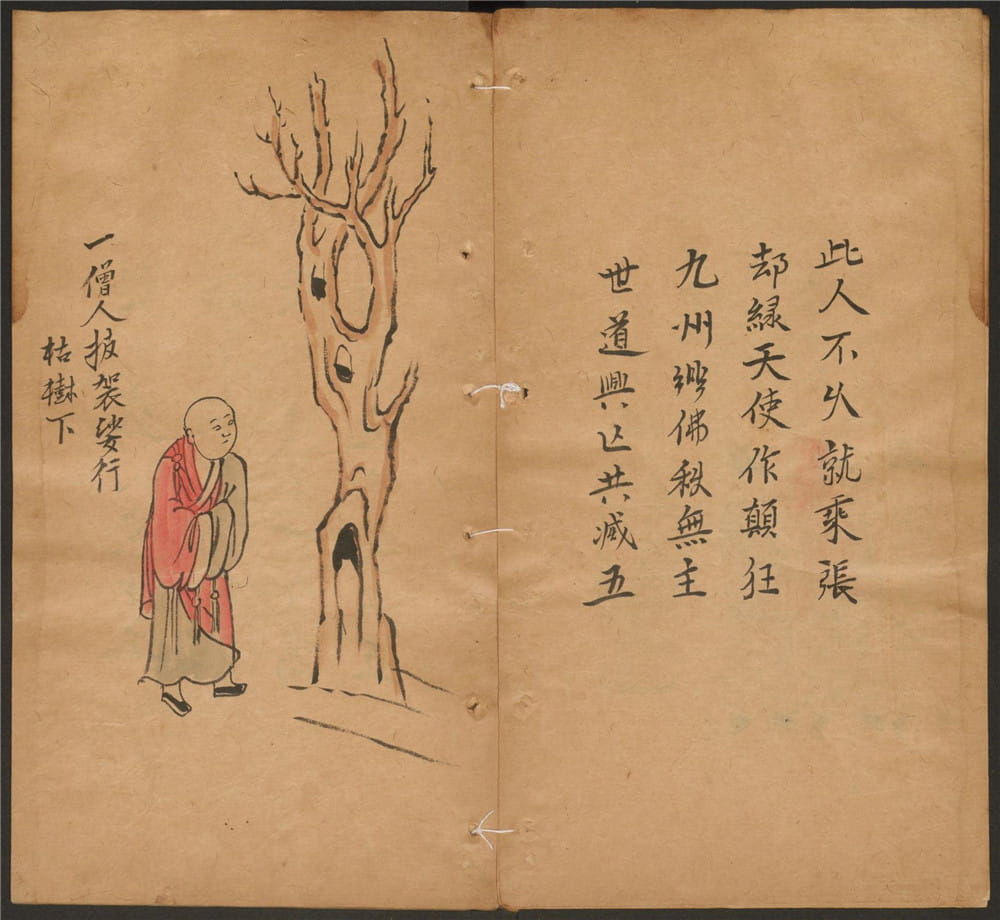 此人不乆就乘張
却緑天使作顛狂
九州佛無主
世道興亾共减五
一僧人披袈裟行
枯樹下